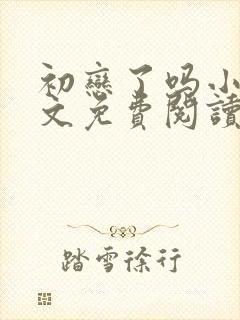 初戀了吗小
文免費閱讀
踏雪徐行